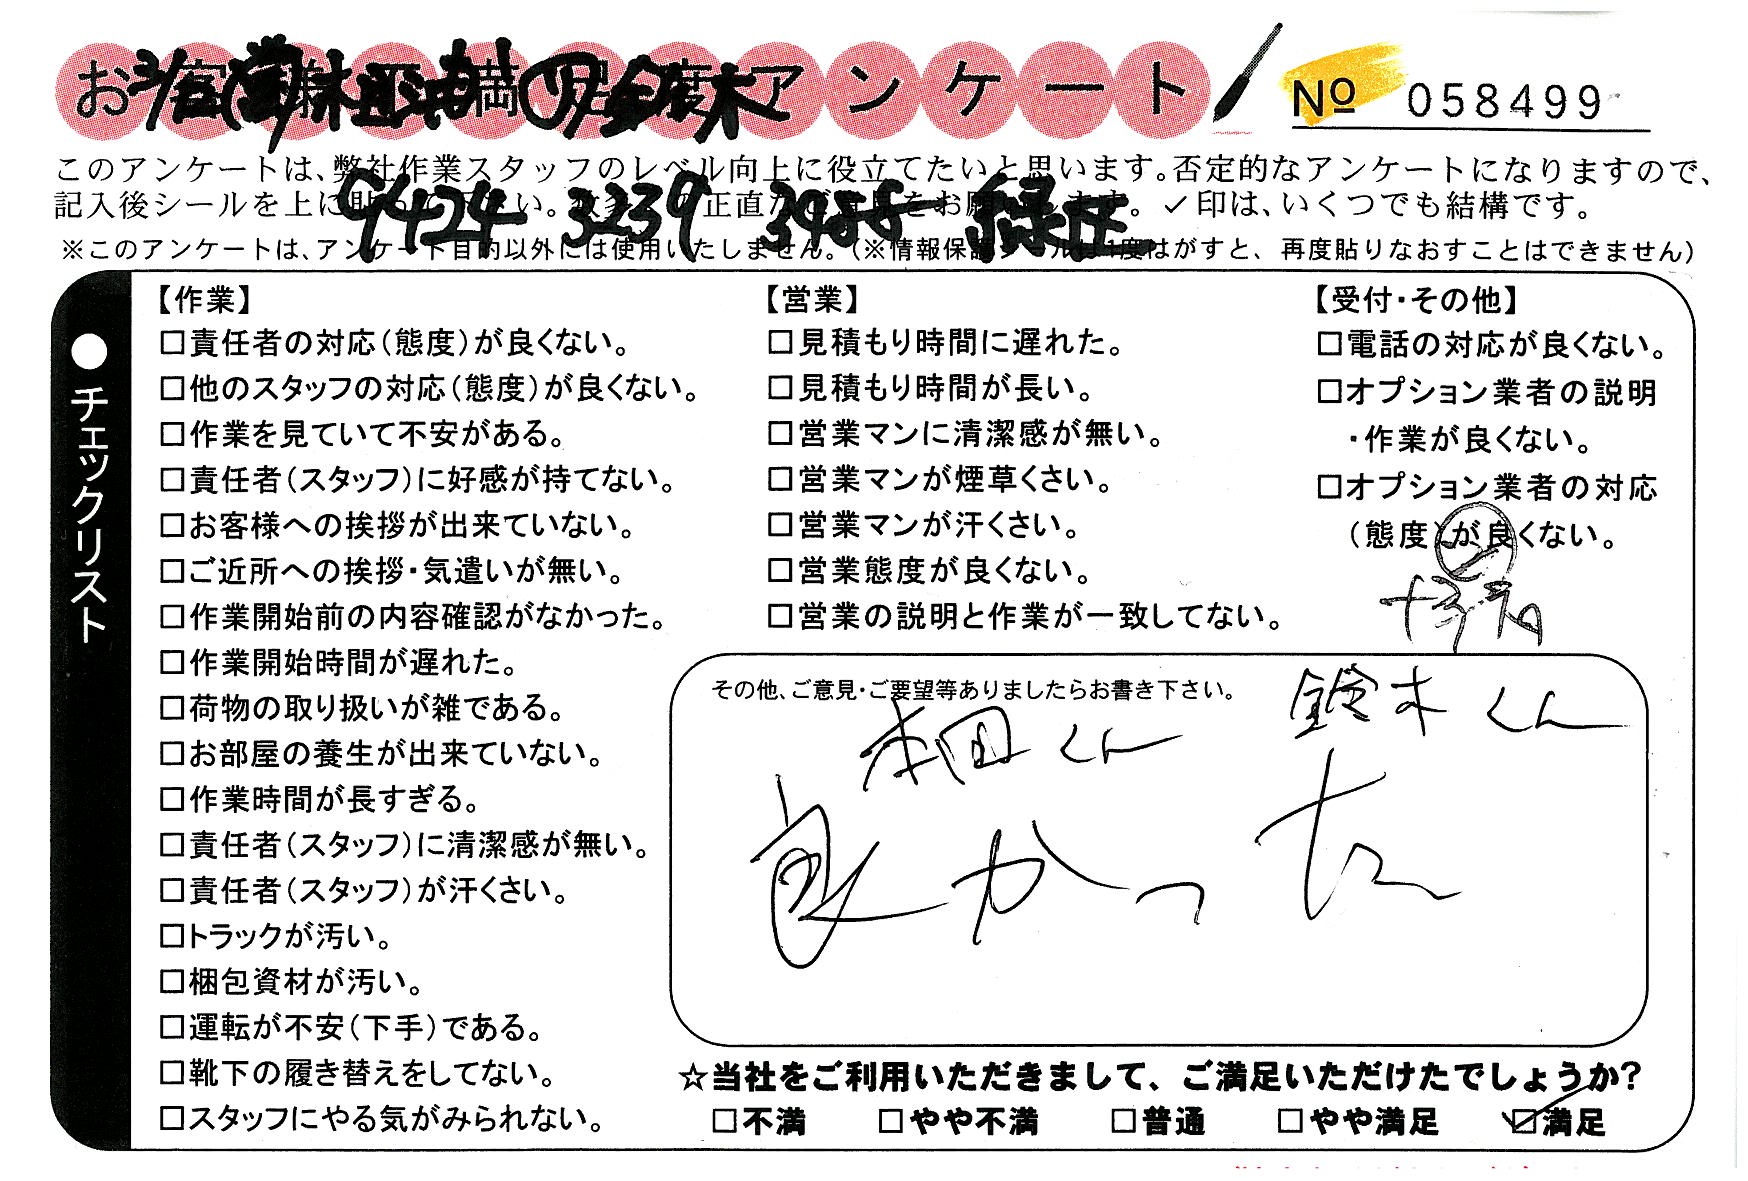 お客様満足度アンケート
№ 058499
このアンケートは、弊社作業スタッフのレベル向上に役立てたいと思います。否定的なアンケートになりますので、
記入後シールを上に貼って下さい。 正直なご意見をお願いします。✓印は、いくつでも結構です。
9424 3239 3485 緑
※このアンケートは、アンケート目的以外には使用いたしません。(※情報保護シールは1度はがすと、再度貼りなおすことはできません)
●チェックリスト
【作業】
□責任者の対応(態度)が良くない。
□他のスタッフの対応(態度)が良くない。
□作業を見ていて不安がある。
□責任者(スタッフ)に好感が持てない。
□お客様への挨拶が出来ていない。
□ご近所への挨拶・気遣いが無い。
□作業開始前の内容確認がなかった。
□作業開始時間が遅れた。
□荷物の取り扱いが雑である。
□お部屋の養生が出来ていない。
□作業時間が長すぎる。
□責任者(スタッフ)に清潔感が無い。
□責任者(スタッフ)が汗くさい。
□トラックが汚い。
□梱包資材が汚い。
□運転が不安(下手)である。
□靴下の履き替えをしてない。
□スタッフにやる気がみられない。
【営業】
□見積もり時間に遅れた。
□見積もり時間が長い。
□営業マンに清潔感が無い。
□営業マンが煙草くさい。
□営業マンが汗くさい。
□営業態度が良くない。
□営業の説明と作業が一致してない。
【受付・その他】
□電話の対応が良くない。
□オプション業者の説明
・作業が良くない。
□オプション業者の対応
(態度)が良くない。
その他、ご意見・ご要望等ありましたらお書き下さい。
本田くん 鈴木くん
良かった
☆当社をご利用いただきまして、ご満足いただけたでしょうか?
□不満 □やや不満 □普通 □やや満足 ☑満足